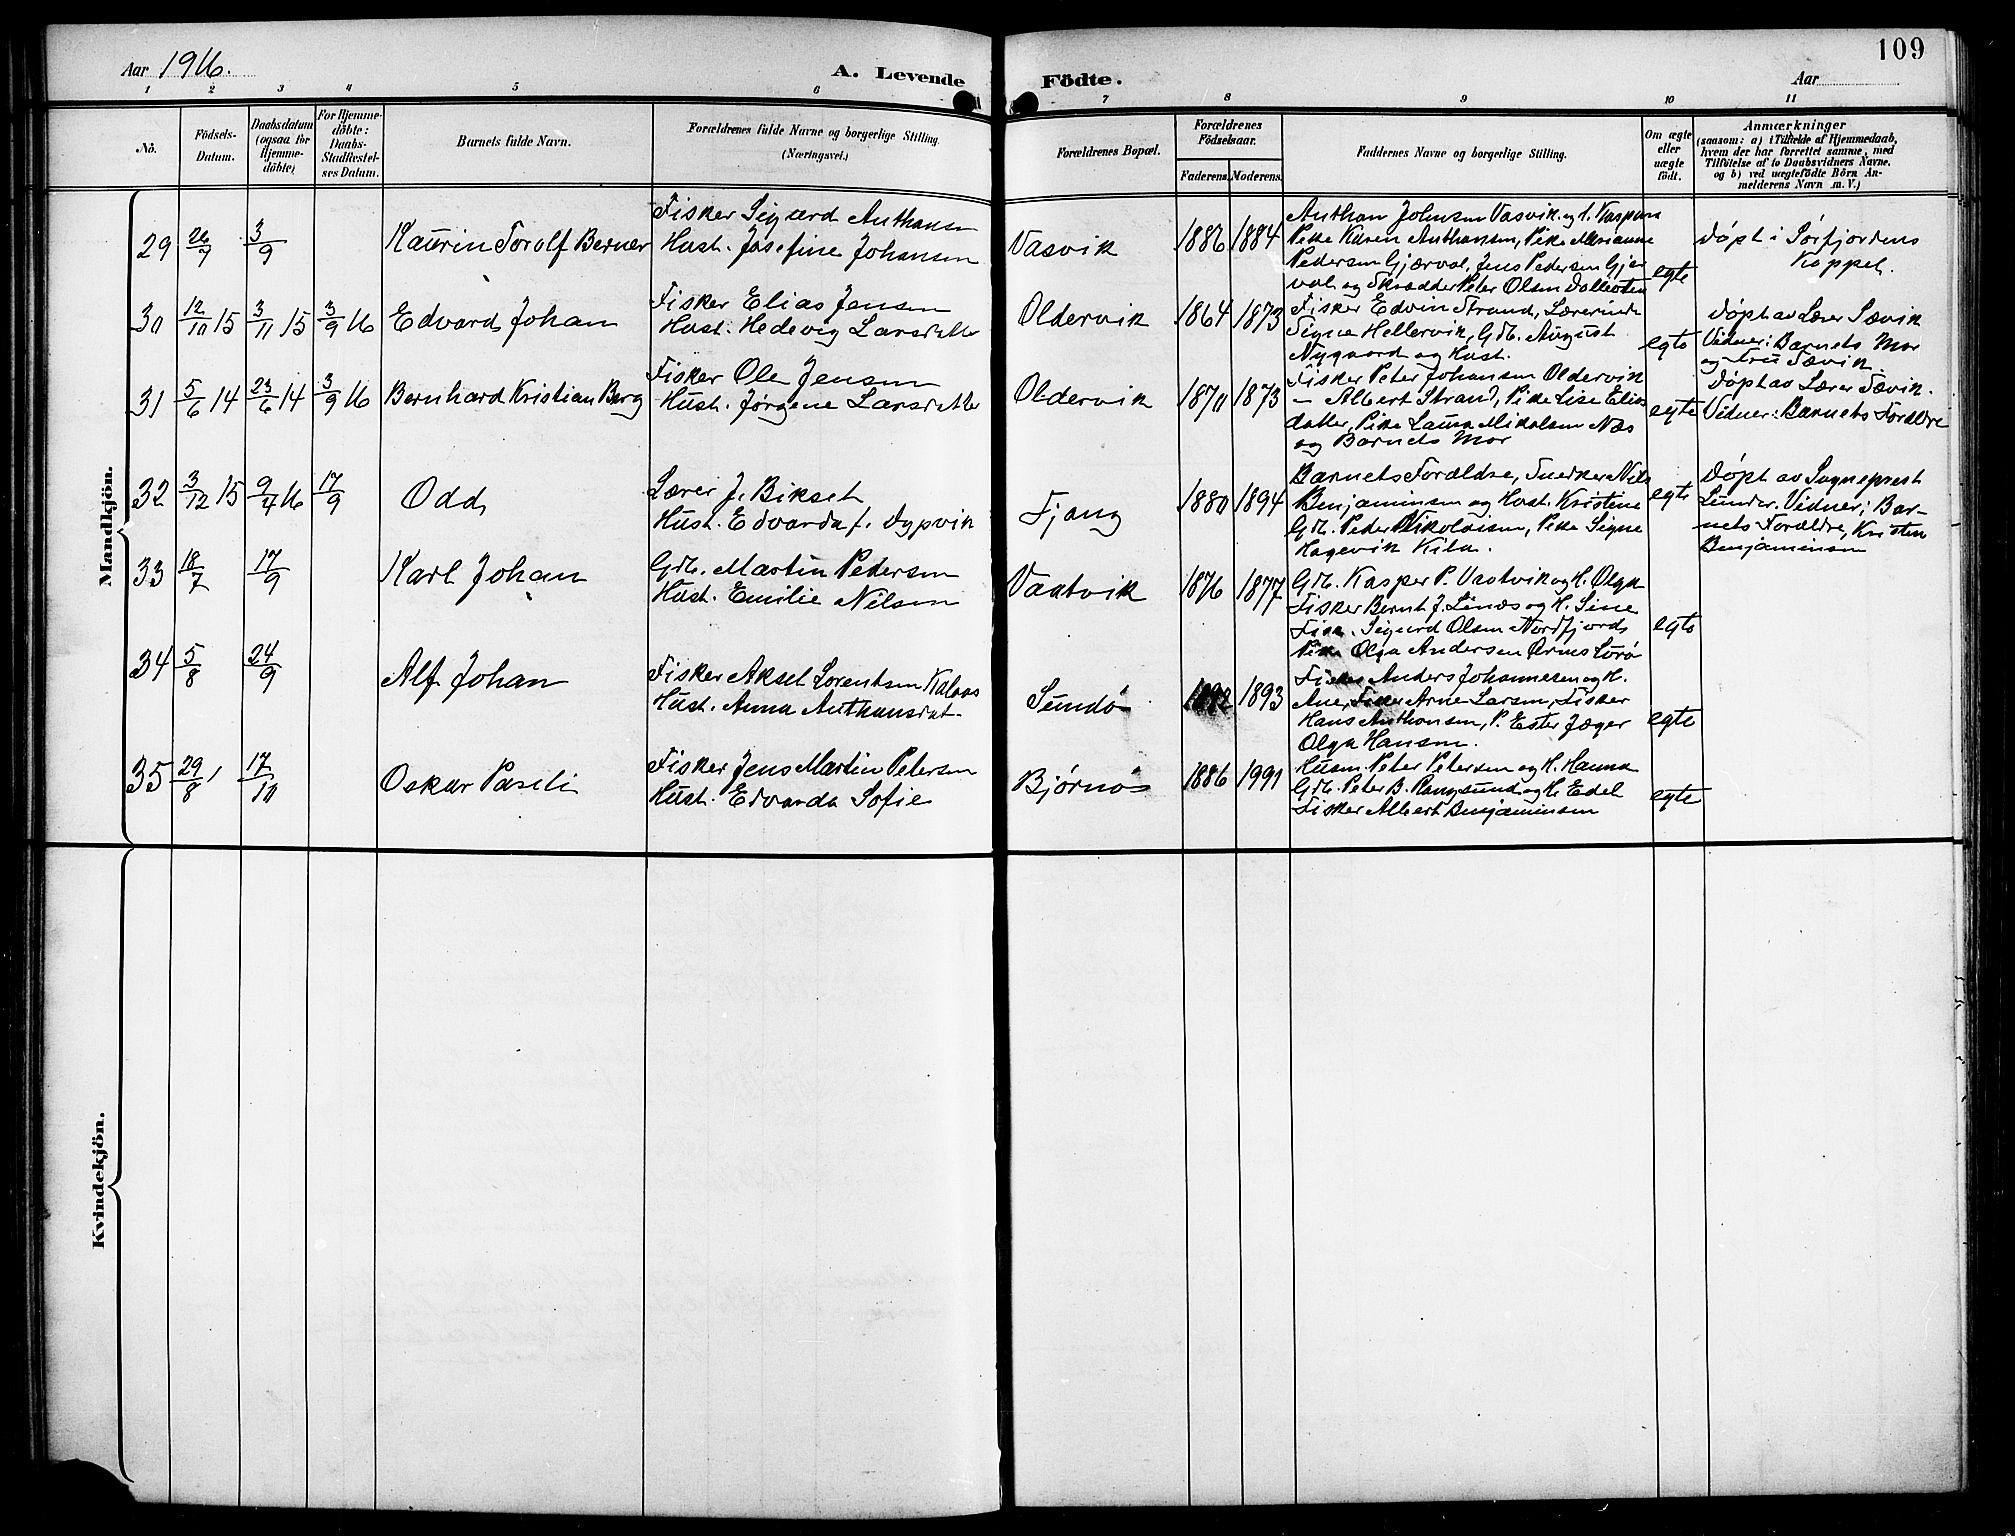 Aar 1916.
A. Levende Födte.
Aar
109
1 2 3 4 5 6 7 8 9 10 11
Nö.
Födsels-
Datum.
Daabsdatum
(ogsaa for
Hjemme-
döbte)
For Hjemme-
döbte:
Daabs-
Stadfæstel-
ses Datum.
Barnets fulde Navn.
Forældrenes fulde Navne og borgerlige Stilling.
(Næringsvei.)
Forældrenes Bopæl.
Forældrenes
Födselsaar.
Faderens. Moderens.
Faddernes Navne og borgerlige Stilling.
Om ægte
eller
uægte
födt.
Anmærkninger
(saasom: a) i Tilfælde af Hjemmedaab,
hvem der har forrettet samme, med
Tilföielse af to Daabsvidners Navne.
og b) ved uægtefödte Börn An-
melderens Navn m. V.)
Mandkjön.
29 26/7 3/9
Kaurin Torolf Berner
Fisker Sigurd Anthonsen
Hust. Josefine Johansen
Vasvik
1886 1884
Anthon Johnsen Vasvik og H. Kaspara
Pike Karen Anthonsen, Pike Marianne
Pedersen Gjærval, Jens Pedersen Gjær
val og Skrædder Peter Olsen
egte
Døpt i Sørfjordens
Kappel.
30 12/10 15 3/11 15 3/9 16
Edvard Johan
Fisker Elias Jensen
Hust. Hedevig Larsdatter
Oldervik
1864 1873
Fisker Edvin Strand, Lærerinde
Signe Hellervik, Gdb. August
Nygaard og Hust.
egte
Døpt av Lærer Sævik
Vidner: Barnets Mor
og Fru Sævik.
31 5/6 14 23/6 14 3/9 16
Bernhard Kristian Berg
Fisker Ole Jensen
Hust. Jørgine Larsdatter
Oldervik
1870 1873
Fisker Peter Johansen Oldervik
— Albert Strand, Pike Lise Elias
datter, Pike Laura Mikalsen Næs
og Barnets Mor
egte
Døpt av Lærer Sævik.
Vidner: Barnets Forældre
32 3/12 15 9/4 16 17/9
Odd
Lærer J. Bikset
Hust. Edvarda f. Dypvik
Fjang
1880 1894
Barnets Forældre, Snedker Nils
Benjaminsen og Hust. Kristine
Gdb. Peder Nikolaisen, Pike Signe
Hagevik Kila.
egte
Døpt av Sogneprest
Lunder. Vidner: Bar-
nets Forældre, Kristen
Benjaminsen
33 18/7 17/9
Karl Johan
Gdb. Martin Pedersen
Hust. Emilie Nilsen
Vaatvik
1876 1877
Gdb. Kasper P. Vaatvik og H. Olga
Fisker Bernt J. Linæs og H. Sine
Fisk. Sigurd Olsen Nordfjord
Pike Olga Andersen
egte
34 5/8 24/9
Alf Johan
Fisker Aksel Lorentsen Kalaas
Hust. Anna Anthonsdat.
Sundø
1892 1893
Fisker Anders Johannesen og H.
Ane, Fisker Arne Larsen, Fisker
Hans Anthonsen, P. Ester Jæger
Olga Hansen.
egte
35 29/8 17/10
Oskar Pareli
Fisker Jens Martin Petersen
Hust. Edvarda Sofie
Bjørnøs
1886 1991
Husm. Peter Petersen og H. Hanna
Gdb. Peter B. Rangsund og H. Edel
Fisker Albert Benjaminsen
egte
Kvindekjön.